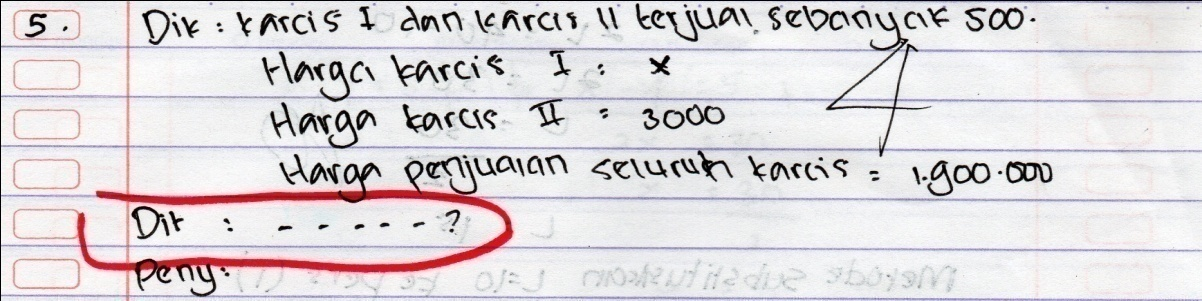 5. Dik : karcis I dan karcis II terjual sebanyak 500.
Harga karcis I : x
Harga karcis II : 3000
Harga penjualan seluruh karcis = 1.900.000
Dit : - - - - - ?
Peny: